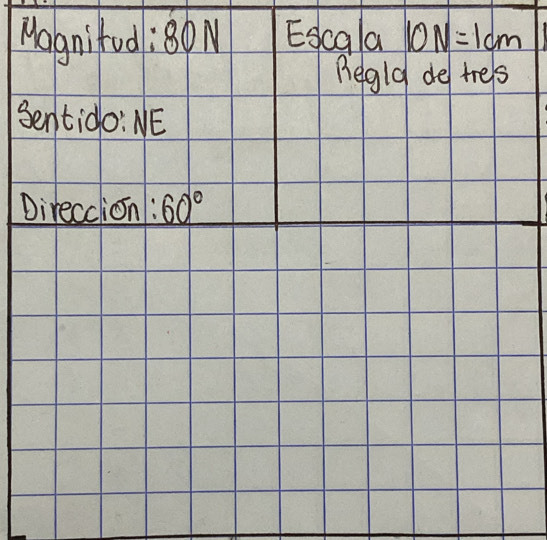 Magnitud: 80N
Escala 10N=1cm
Regla de tres
Sentido: NE
Dirección: 60°